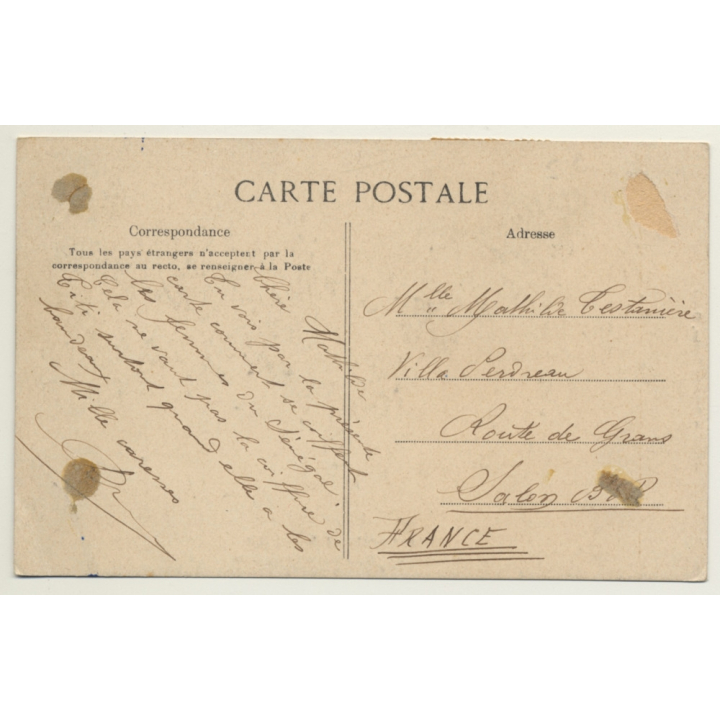 CARTE POSTALE
Correspondance
Tous les pays étrangers n'acceptent par la
correspondance au recto, se renseigner à la Poste
Chère Mathilde
Tu vois par la présente
carte comment se coiffent
les femmes du Sénégal.
Cela ne vaut pas la coiffure de
Titi surtout quand elle a les
bandeaux
Mille caresses
Adresse
Mlle Mathilde Testanière
Villa Perdreau
Route de Grans
Salon B d R
FRANCE